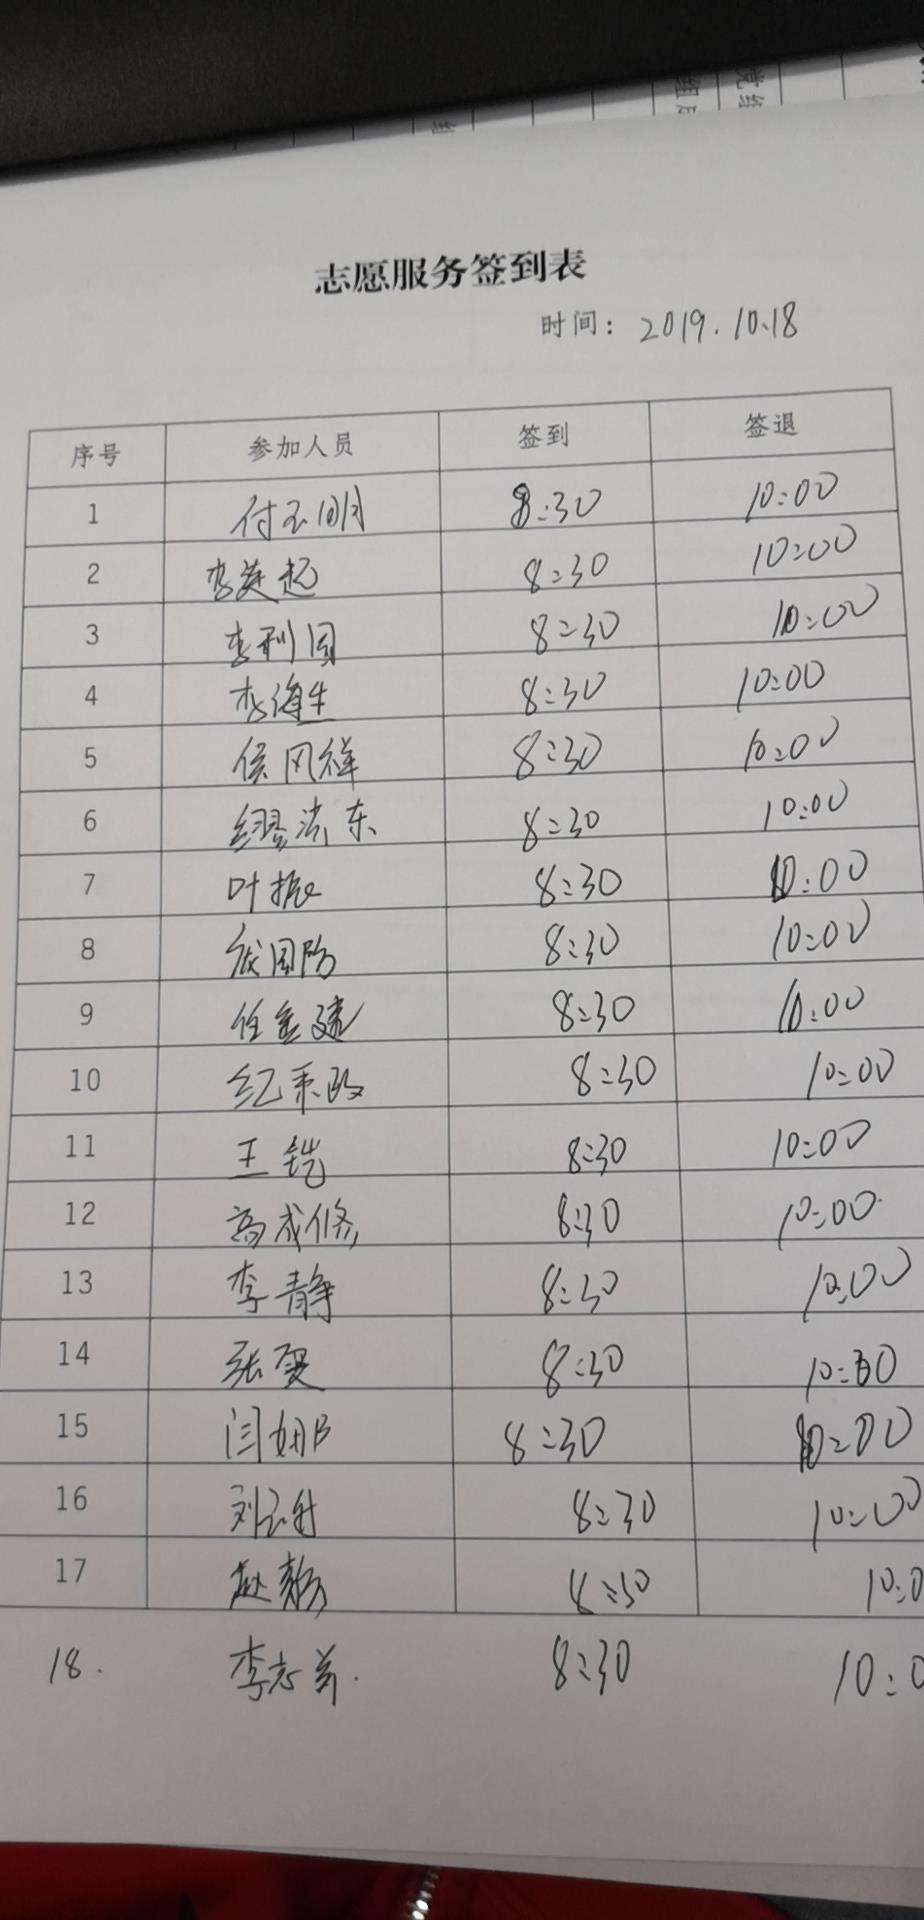 志愿服务签到表
时间: 2019.10.18
序号 参加人员 签到 签退
1 付玉明 8:30 10:00
2 李英起 8:30 10:00
3 李利国 8:30 10:00
4 李海生 8:30 10:00
5 侯风祥 8:30 10:00
6 缪洪东 8:30 10:00
7 叶振 8:30 10:00
8 国防 8:30 10:00
9 任金建 8:30 10:00
10 纪秉政 8:30 10:00
11 王铠 8:30 10:00
12 高成修 8:30 10:00
13 李静 8:30 10:00
14 张 8:30 10:30
15 闫妍 8:30 10:00
16 刘 8:30 10:00
17 赵 8:30 10:0
18. 李志 8:30 10:0